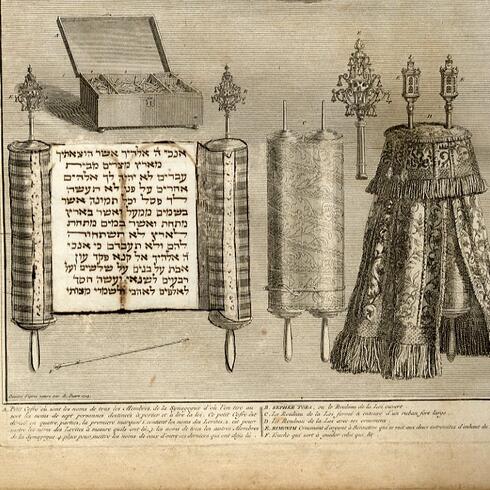 אנכי ה׳ אלהיך אשר הוצאתיך
מארץ מצרים מבית
עבדים לא יהיה לך אלהים
אחרים על פני לא תעשה
לך פסל וכל תמונה אשר
בשמים ממעל ואשר בארץ
מתחת ואשר במים מתחת
לארץ לא תשתחוה
להם ולא תעבדם כי אנכי
ה׳ אלהיך אל קנא פקד עון
אבת על בנים על שלשים ועל
רבעים לשנאי ועשה חסד
לאלפים לאהבי ולשמרי מצותי
A. Petit Cofre où sont les noms de tous les Membres de la Synagogue d'où l'on tire au
sort les noms de sept personnes destinées à porter et à lire la loi. Ce petit Cofre est
divisé en quatre parties, la premiere marquée 1. contient les noms des Levites, 2. est pour
mettre les noms des Levites à mesure qu'ils ont lû, 3. les noms de tous les autres Membres
de la Synagogue 4. place pour mettre les noms de ceux d'entre ces derniers qui ont déja lû.
B. SEPHER TORA, ou le Rouleau de la Loi ouvert
C. Le Rouleau de la Loi fermé & entouré d'un ruban fort large
D. Le Rouleau de la Loi avec ses ornemens
E. RIMONIM Ornement d'argent à
F. Touche qui sert à guider celui qui lit